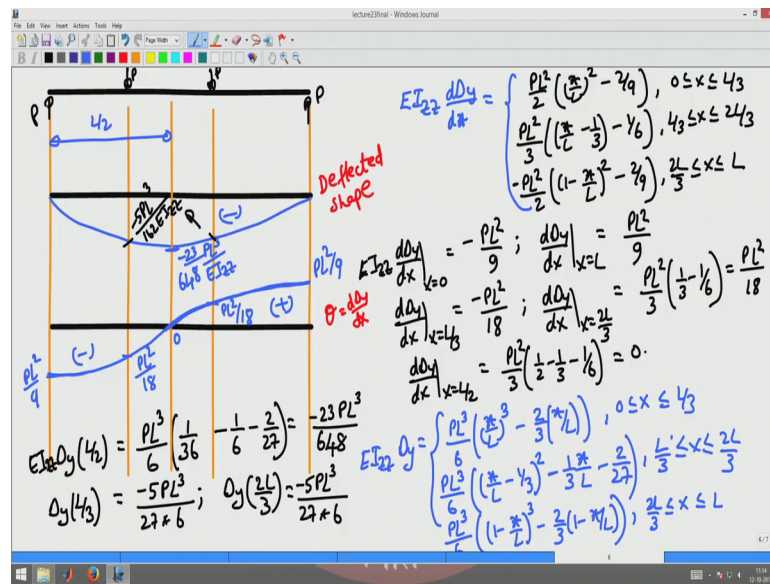 lecture23final - Windows Journal
File Edit View Insert Actions Tools Help
Page Width
P P P P
L/2
Deflected shape
-5PL^3/162EIzz
-23PL^3/648EIzz
(-)
PL^2/9
PL^2/18
(+)
θ = dΔy/dx
0
(-)
PL^2/18
PL^2/9
EIzz Δy(L/2) = PL^3/6 (1/36 - 1/6 - 2/27) = -23PL^3/648
Δy(L/3) = -5PL^3/27*6 ; Δy(2L/3) = -5PL^3/27*6
EIzz dΔy/dx = { PL^2/2 ((x/L)^2 - 2/9), 0≤x≤L/3
PL^2/3 ((x/L - 1/3) - 1/6), L/3≤x≤2L/3
-PL^2/2 ((1-x/L)^2 - 2/9), 2L/3≤x≤L
EIzz dΔy/dx|x=0 = -PL^2/9 ; dΔy/dx|x=L = PL^2/9
dΔy/dx|x=L/3 = -PL^2/18 ; dΔy/dx|x=2L/3 = PL^2/3 (1/3 - 1/6) = PL^2/18
dΔy/dx|x=L/2 = PL^2/3 (1/2 - 1/3 - 1/6) = 0.
EIzz Δy = { PL^3/6 ((x/L)^3 - 2/3 (x/L)), 0≤x≤L/3
PL^3/6 ((x/L - 1/3)^2 - 1/3 x/L - 2/27), L/3≤x≤2L/3
PL^3/6 ((1-x/L)^3 - 2/3 (1-x/L)), 2L/3≤x≤L
6/7
6
11:54